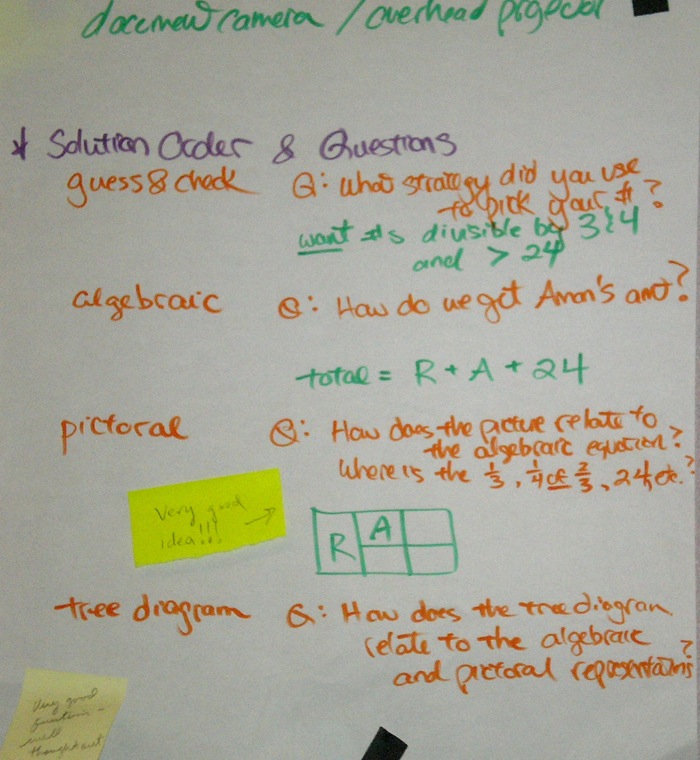 document camera / overhead projector
* Solution Order & Questions
guess & check Q: What strategy did you use
to pick your #?
want #s divisible by 3 & 4
and > 24
algebraic Q: How do we get Amon's amt?
total = R + A + 24
pictoral Q: How does the picture relate to
the algebraic equation?
Where is the 1/3, 1/4 of 2/3, 24, etc.?
Very good
idea!!!
R A
tree diagram Q: How does the tree diagram
relate to the algebraic
and pictoral representations?
Very good
questions -
well
thought out